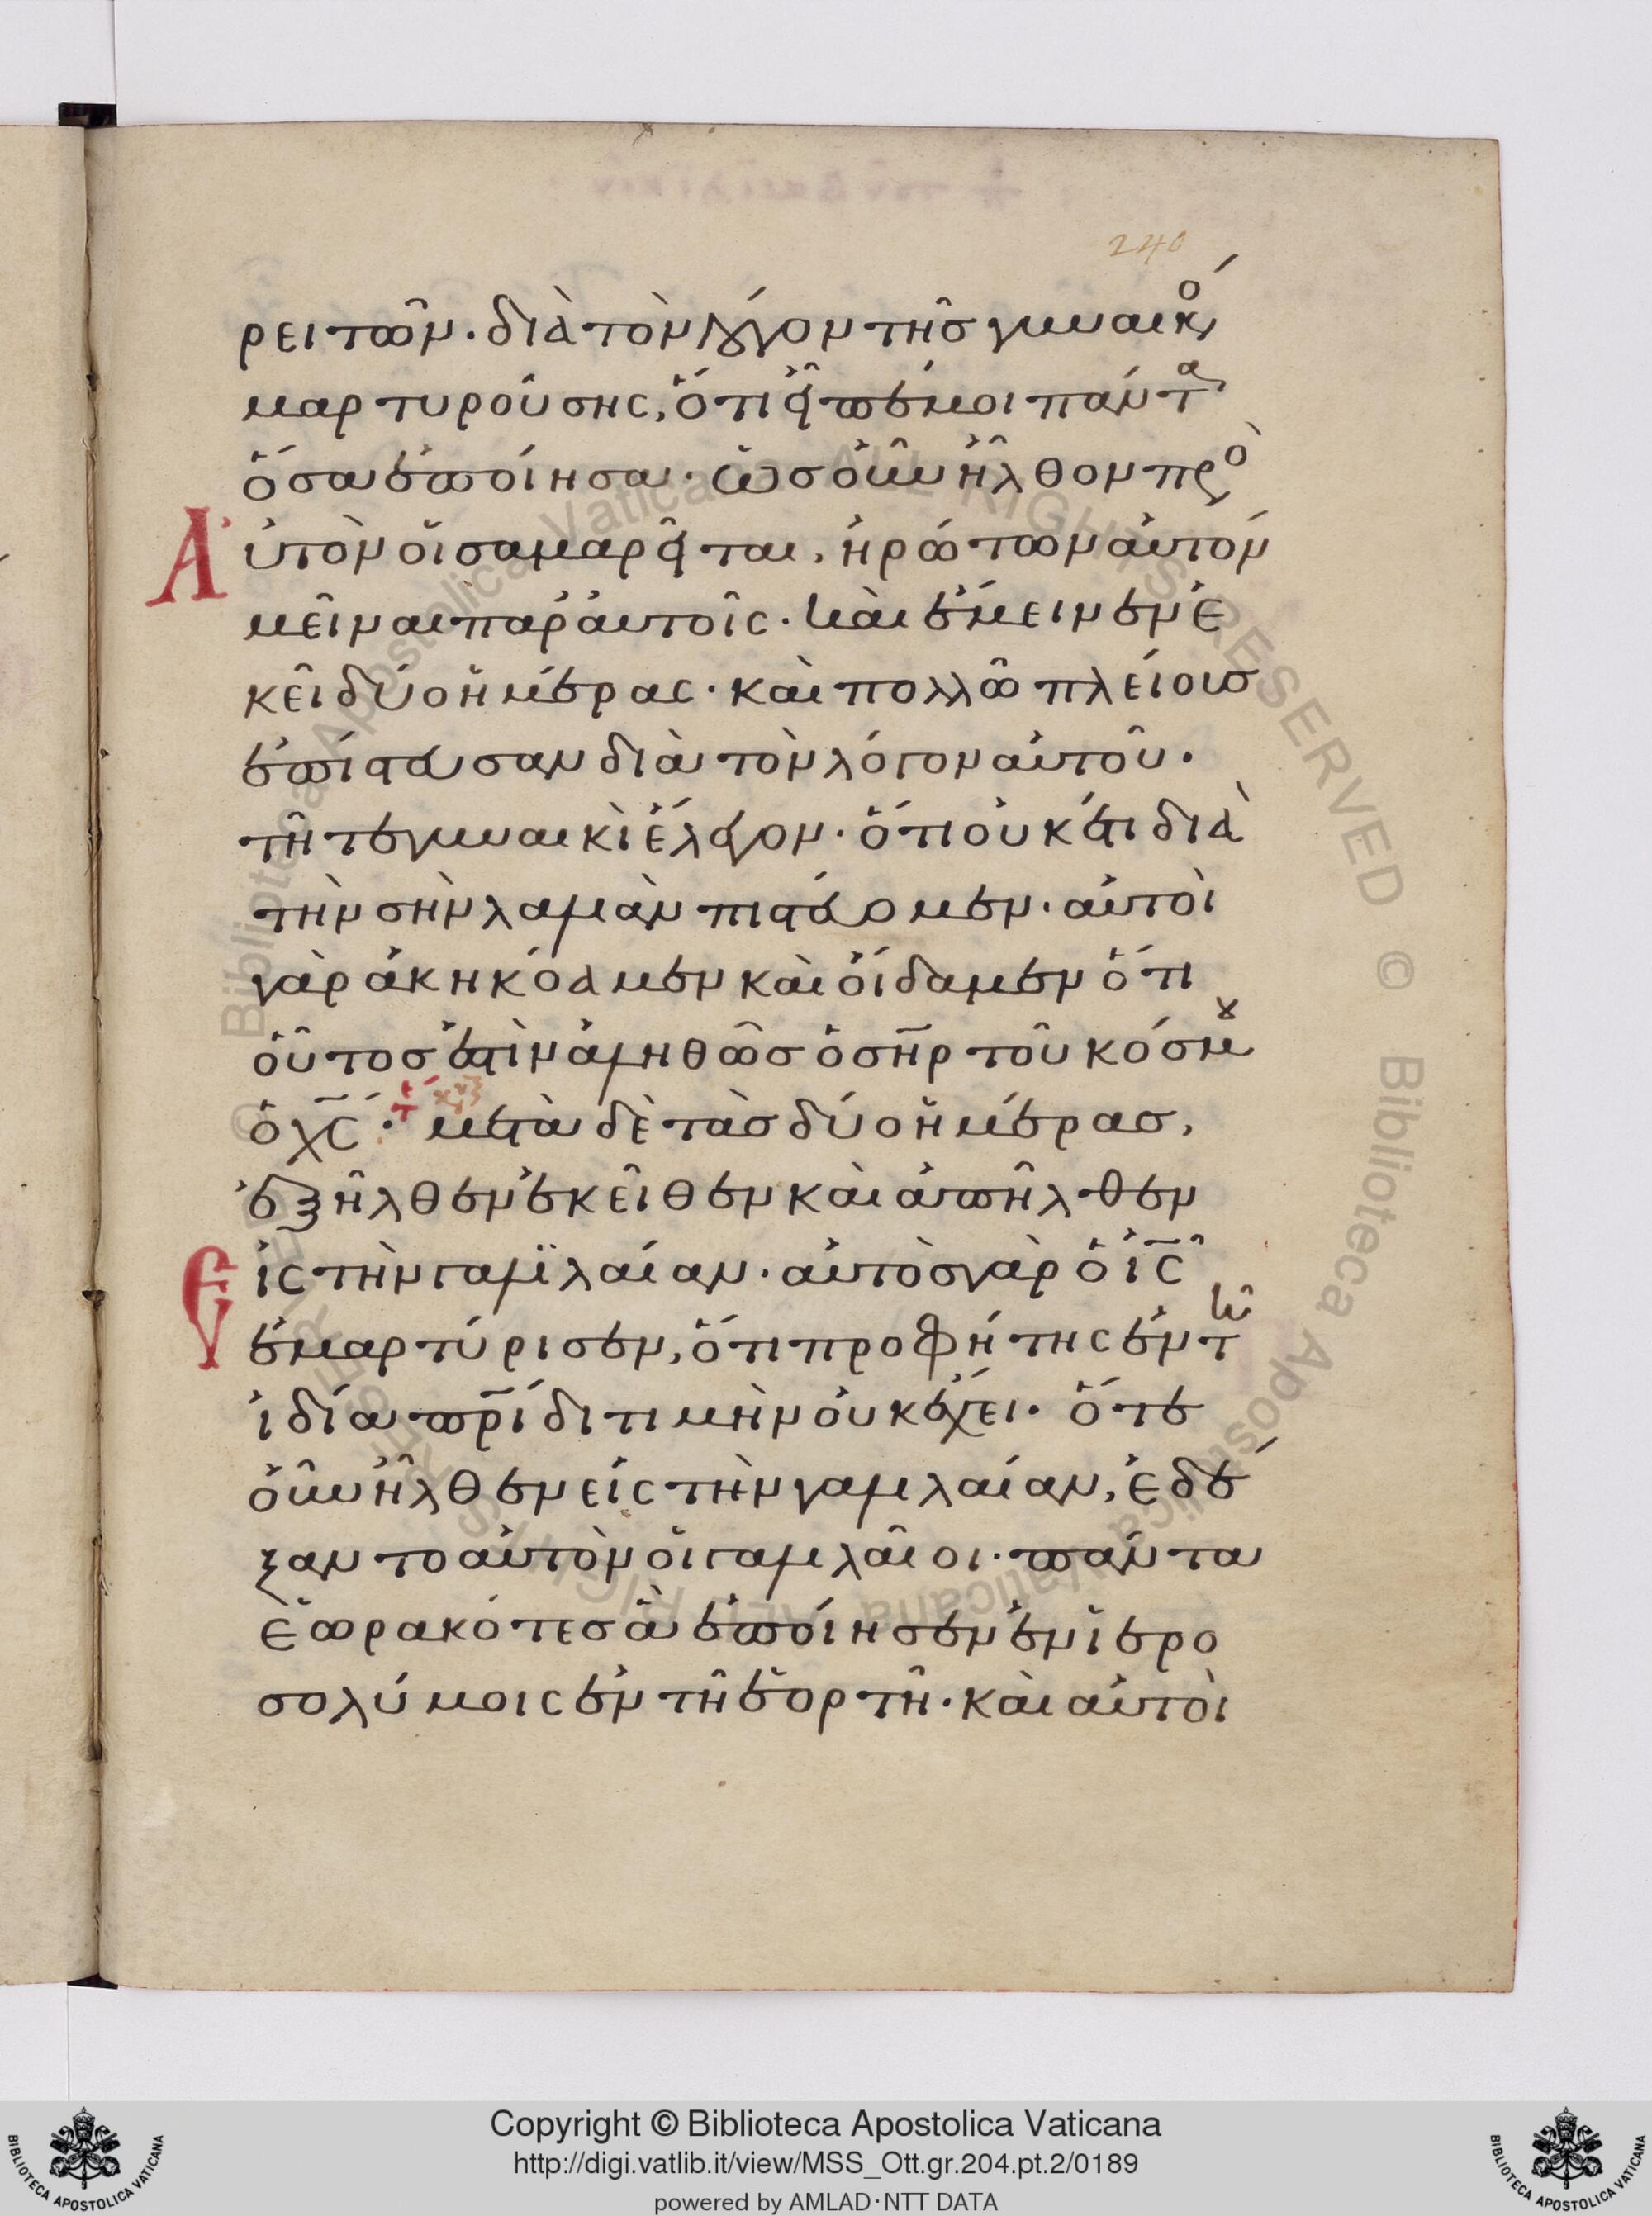 240
ρειτῶν· διὰ τὸν λόγον τῆσ γυναικό
μαρτυρούσης, ὅτι εἶπέ μοι πάντα
ὅσα ἐποίησα· ὡσ οὖν ἦλθον πρὸ
Αὐτὸν οἱ σαμαρεῖται, ἠρώτων αὐτόν
μεῖναι παρ αὐτοῖς· καὶ ἔμεινεν ἐ
κεῖ δύο ἡμέρας· καὶ πολλῶ πλείουσ
ἐπίστευσαν διὰ τὸν λόγον αὐτοῦ·
τῆ τε γυναικὶ ἔλεγον· ὅτι οὐκέτι διὰ
τὴν σὴν λαλιὰν πιστεύομεν· αὐτοὶ
γὰρ ἀκηκόαμεν καὶ οἴδαμεν ὅτι
οὗτοσ ἐστὶν ἀληθῶσ ὁ σ̅η̅ρ τοῦ κόσμου
ὁ χ̅ς̅· μετὰ δὲ τὰσ δύο ἡμέρασ,
ἐξῆλθεν ἐκεῖθεν καὶ ἀπῆλθεν
Εἰς τὴν γαλιλαίαν· αὐτὸσ γὰρ ὁ ἰ̅ς̅
ἐμαρτύρισεν, ὅτι προφήτης ἐν τῆ
ἰδία π̅ρ̅ίδι τιμὴν οὐκ ἔχει· ὅτε
οὖν ἦλθεν εἰς τὴν γαλιλαίαν, ἐδέ
ξαντο αὐτὸν οἱ γαλιλαῖοι· πάντα
ἑωρακότεσ ἃ ἐποίησεν ἐν ἱερο
σολύμοις ἐν τῆ ἑορτῆ· καὶ αὐτοὶ
Copyright © Biblioteca Apostolica Vaticana
http://digi.vatlib.it/view/MSS_Ott.gr.204.pt.2/0189
powered by AMLAD·NTT DATA